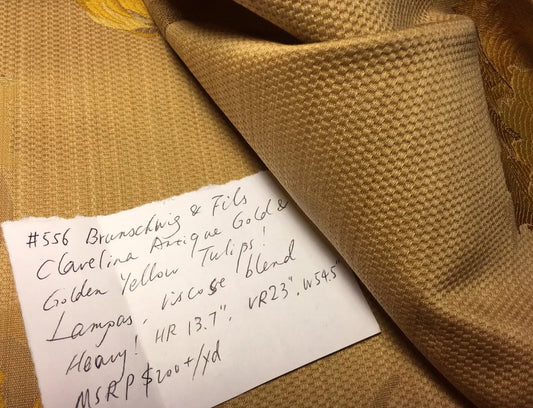 #556 Brunschwig & Fils
Clavelina Antique Gold &
Golden Yellow Tulips!
Lampas, viscose blend
Heavy! HR 13.7", VR 23", W 54.5"
MSRP $200+/yd